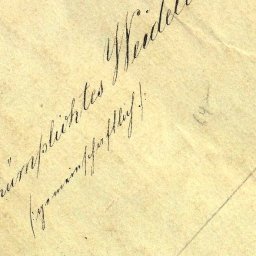 rümplichtes Weidel
(gemeinschaftlich).
14